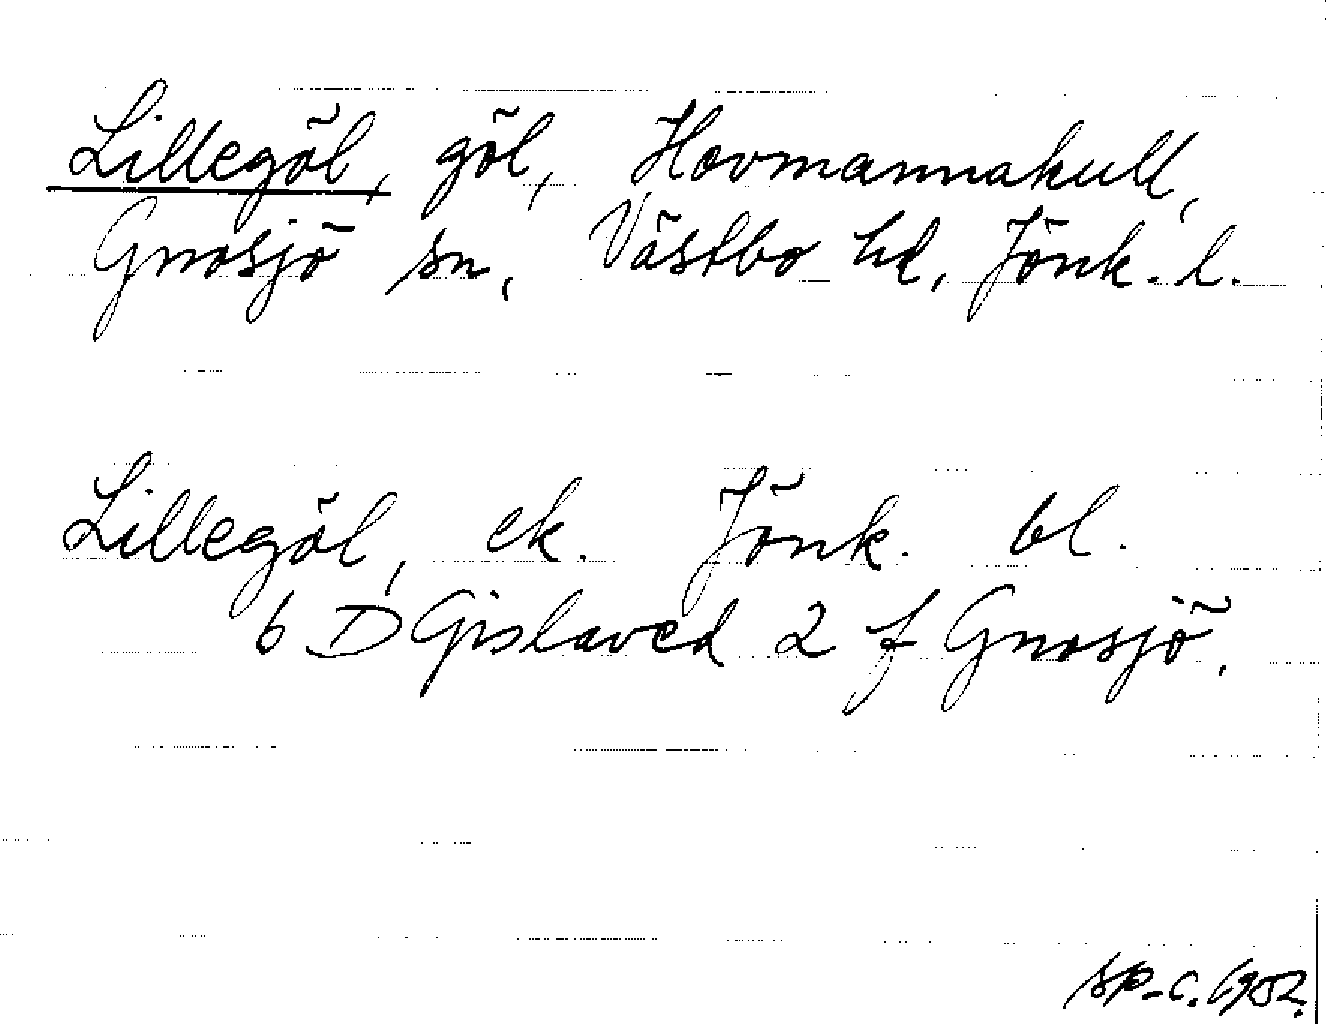 Lillegöl, göl, Hovmannakull,
Gnosjö sn, Västbo hd, Jönk. l.
Lillegöl, ek. Jönk. bl.
6 D Gislaved 2 f Gnosjö.
1952.